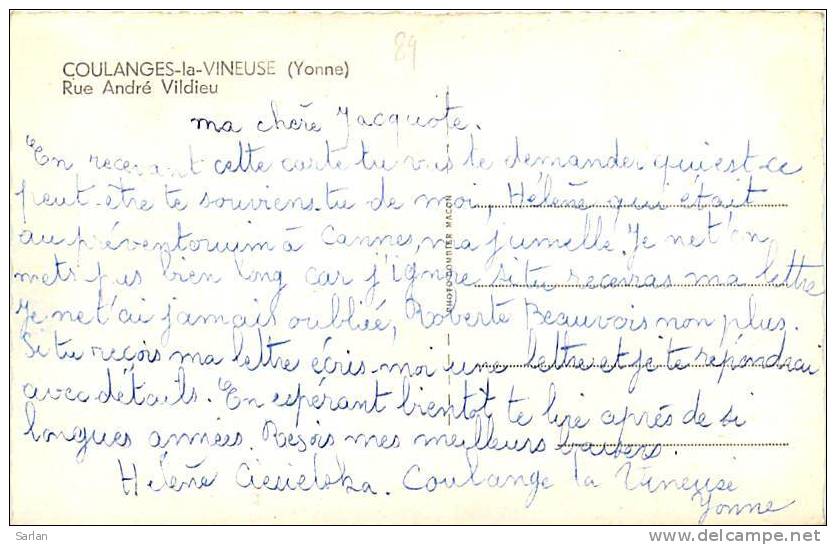 89
COULANGES-la-VINEUSE (Yonne)
Rue André Vildieu
ma chère Jacquote.
En recevant cette carte tu vas te demander qui est-ce
peut-être te souviens-tu de moi, Hélène qui était
au préventorium à Cannes, ma jumelle. Je ne t'en
mets pas bien long car j'ignore si tu recevras ma lettre
Je ne t'ai jamais oubliée, Roberte Beauvois non plus.
Si tu reçois ma lettre écris-moi une lettre et je te répondrai
avec détails. En espérant bientôt te lire après de si
longues années. Resois mes meilleurs baisers.
Hélène Coulange la Vineuse
Yonne
PHOTO COMBIER MACON
Sarlan
www.delcampe.net